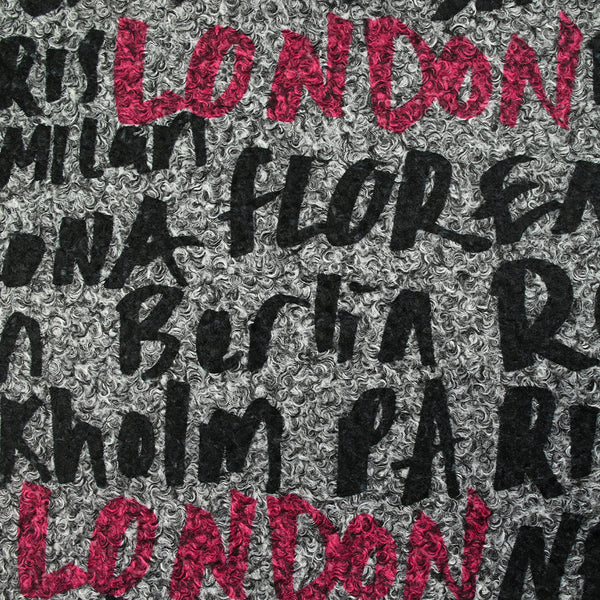 RIS LONDON
MILAN
ONA FLOREN
n Berlin R
kholm PARI
LONDON N